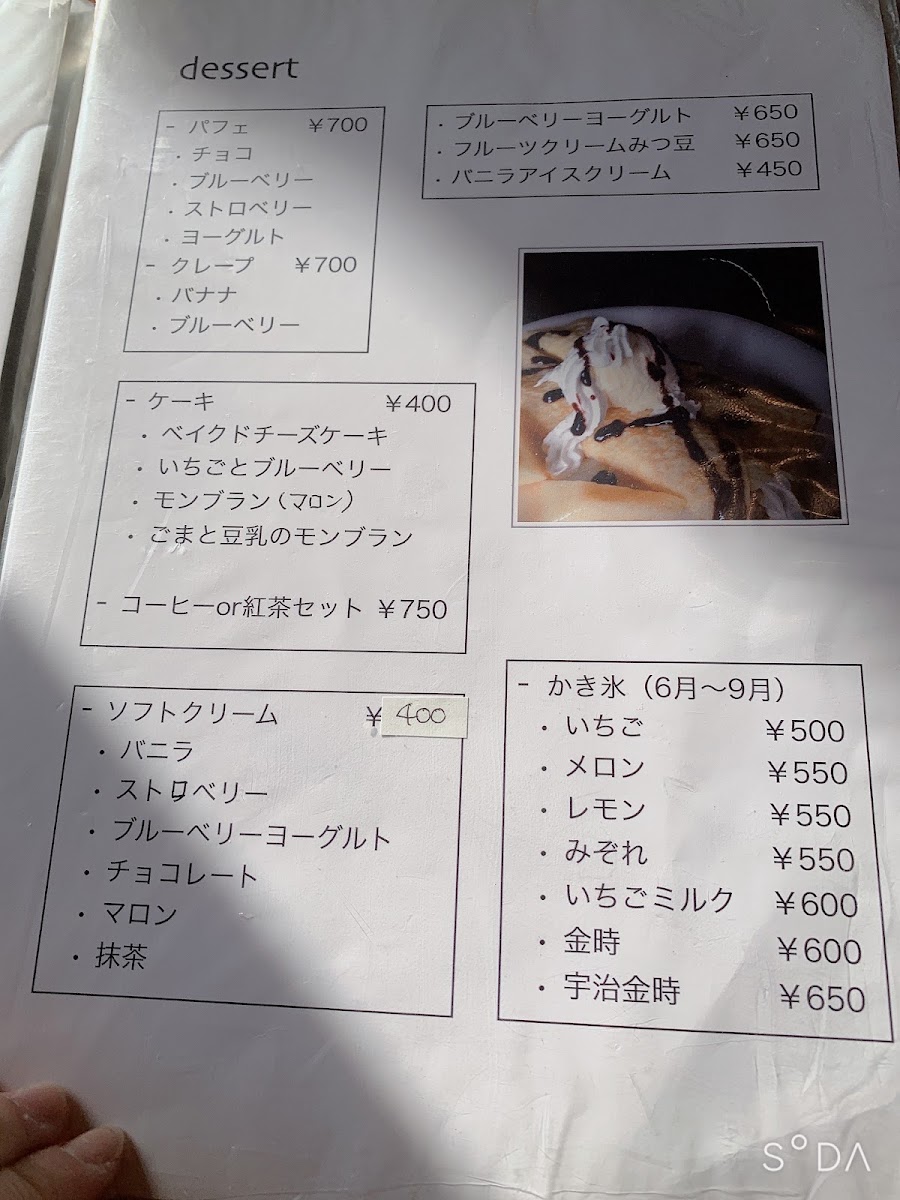 dessert
- パフェ ￥700
・チョコ
・ブルーベリー
・ストロベリー
・ヨーグルト
- クレープ ￥700
・バナナ
・ブルーベリー
・ブルーベリーヨーグルト ￥650
・フルーツクリームみつ豆 ￥650
・バニラアイスクリーム ￥450
- ケーキ ￥400
・ベイクドチーズケーキ
・いちごとブルーベリー
・モンブラン（マロン）
・ごまと豆乳のモンブラン
- コーヒーor紅茶セット ￥750
- ソフトクリーム ￥400
・バニラ
・ストロベリー
・ブルーベリーヨーグルト
・チョコレート
・マロン
・抹茶
- かき氷（6月〜9月）
・いちご ￥500
・メロン ￥550
・レモン ￥550
・みぞれ ￥550
・いちごミルク ￥600
・金時 ￥600
・宇治金時 ￥650
SODA